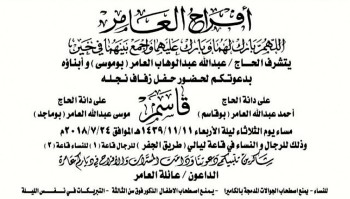 أفراح العامر
اللهم بارك لهما وبارك عليهما واجمع بينهما في خير
يتشرف الحاج / عبدالله عبدالوهاب العامر (بوموسى) و أبناؤه
بدعوتكم لحضور حفل زفاف نجله
قاسم
على دانة الحاج
أحمد عبدالله العامر (بوقاسم)
على دانة الحاج
موسى عبدالله العامر (بوماجد)
مساء يوم الثلاثاء ليلة الأربعاء ١٤٣٩/١١/١١هـ الموافق ٢٠١٨/٧/٢٤م
وذلك للرجال و النساء في قاعة ليالي (طريق الجفر) (للرجال قاعة ١) (للنساء قاعة ٢)
شاكرين تلبيتكم دعوتنا ودامت المسرات والأفراح في دياركم عامرة
الداعون / عائلة العامر
للنساء - يمنع اصطحاب الجوالات المدمجة بالكاميرا - يمنع اصطحاب الاطفال الذكور فوق سن الثالثة - التبريكات في نفس الليلة